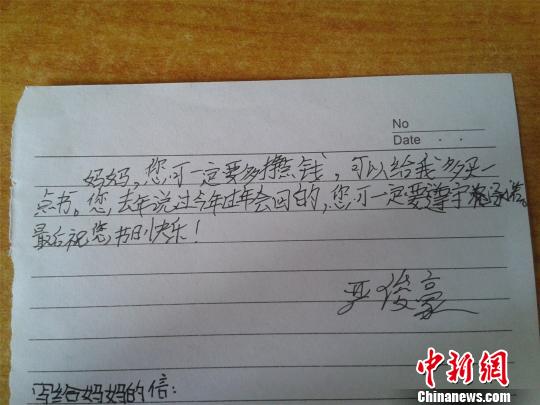 No
Date
妈妈，您可一定要多攒点钱，可以给我多买一
点书。您，去年说过今年过年会回的，您可一定要遵守承诺。
最后祝您节日快乐！
严俊豪
写给妈妈的信：
中新网
Chinanews.com